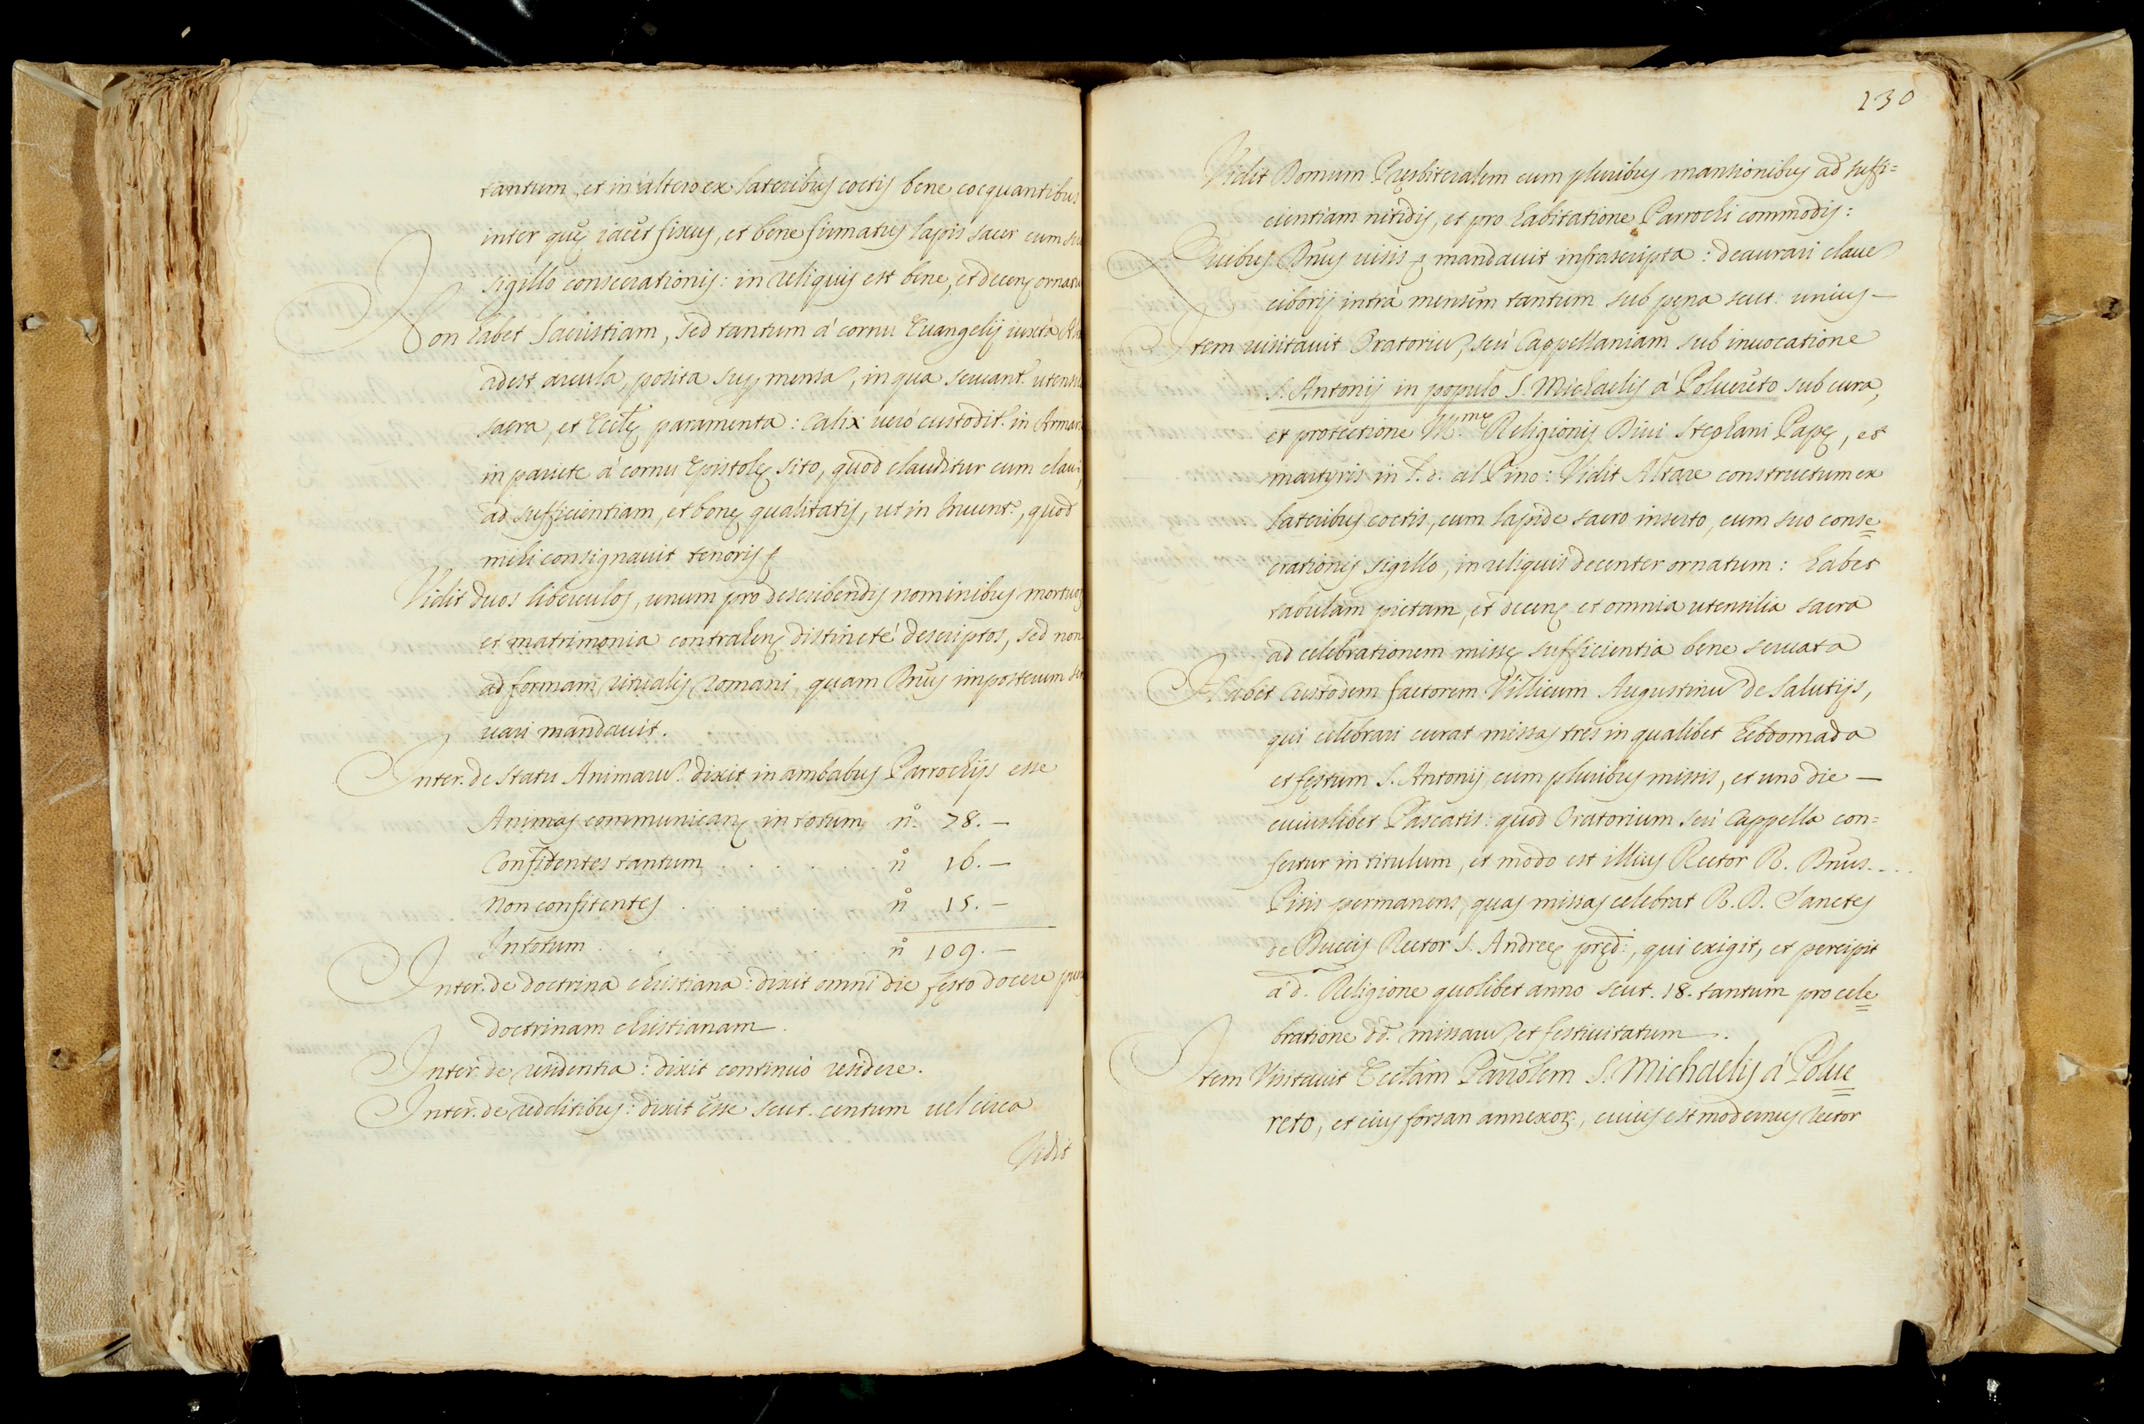 tantum, et in altero ex lateribus coctis bene coequantibus
inter quę iacet fixus, et bene firmatus lapis sacer cum
sigillo consecrationis: in reliquis est bene, et decenę ornatu
Non habet Sacristiam, sed tantum à cornu Euangelij iuxta
adest arcula, posita sup. mensa, in qua seruant.r utensi
sacra, et Eccl.ę paramenta: Calix uerò custodit.r in Armar
in pariete à cornu Epistolę sito, quod clauditur cum claui,
ad sufficientiam, et bonę qualitatis, ut in Inuent.o, quod
mihi consignauit tenoris
Vidit duos liberculos, unum pro describendis nominibus mortuo
et matrimonia contrahenę distinctè descriptos, sed non
ad formam ritualis Romani, quam Dnus imposterum ser
uari mandauit.
Inter. de statu Animaru. dixit in ambabus Parrochijs esse
Animas communicanę in totum n.o 78. —
Confitentes tantum . . . . . n.o 16. —
Non confitentes . . . . . n.o 15. —
In totum . . . . . n.o 109. —
Inter. de doctrina christiana: dixit omni die festo docere
doctrinam christianam.
Inter. de residentia: dixit continuò residere.
Inter. de redditibus: dixit esse scut. centum uel circa
Vidit
130
Vidit Domum Pręsbiteralem cum pluribus mansionibus ad suffi=
cientiam nitidis, et pro habitatione Parrochi commodis:
Quibus Dnus uisis mandauit infrascripta: deaurari claue
ciborij intrà mensem tantum sub pęna scut. unius —
Item uisitauit Oratoriu, seù Cappellaniam sub inuocatione
S. Antonij in populo S. Michaelis à Poluereto sub cura,
et protectione Ill.mę Religionis Diui Stephani Papę, et
martyris in l. d. al Pino: Vidit Altare constructum ex
lateribus coctis, cum lapide sacro inserto, cum suo conse=
crationis sigillo, in reliquis decenter ornatum: habet
tabulam pictam, et decenę et omnia utensilia sacra
ad celebrationem missę sufficientia bene seruata
Habet Custodem factorem Villicum Augustinu de Salutijs,
qui celebrari curat missas tres in qualibet hebdomada
et festum S. Antonij cum pluribus missis, et uno die —
cuiuslibet Pascatis: quod Oratorium seù Cappella con=
fertur in titulum, et modo est illius Rector R. Dnus . . . .
Pisis permanens, quas missas celebrat R. D. Sanctes
de Buccis Rector S. Andreę pręd.i, qui exigit, et percipit
à d.a Religione quolibet anno scut. 18. tantum pro cele=
bratione dd. missaru et festiuitatum.
Item Visitauit Eccl.am Parrochlem S. Michaelis à Polue=
reto, et eius forsan annexoꝝ, cuius est modernus Rector